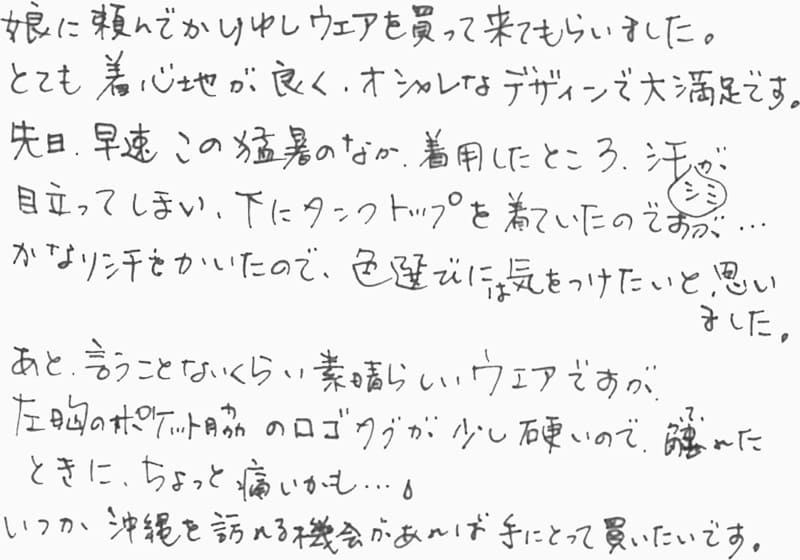 娘に頼んでかりゆしウェアを買って来てもらいました。
とても着心地が良く、オシャレなデザインで大満足です。
先日、早速この猛暑のなか、着用したところ、汗ジミが
目立ってしまい、下にタンクトップを着ていたのですが、…
かなり汗をかいたので、色選びには気をつけたいと、思い
ました。
あと、言うことないくらい素晴らしいウェアですが、
左胸のポケット脇のロゴタグが少し硬いので、腕で触れた
ときに、ちょっと痛いかも…。
いつか、沖縄を訪れる機会があれば手にとって買いたいです。